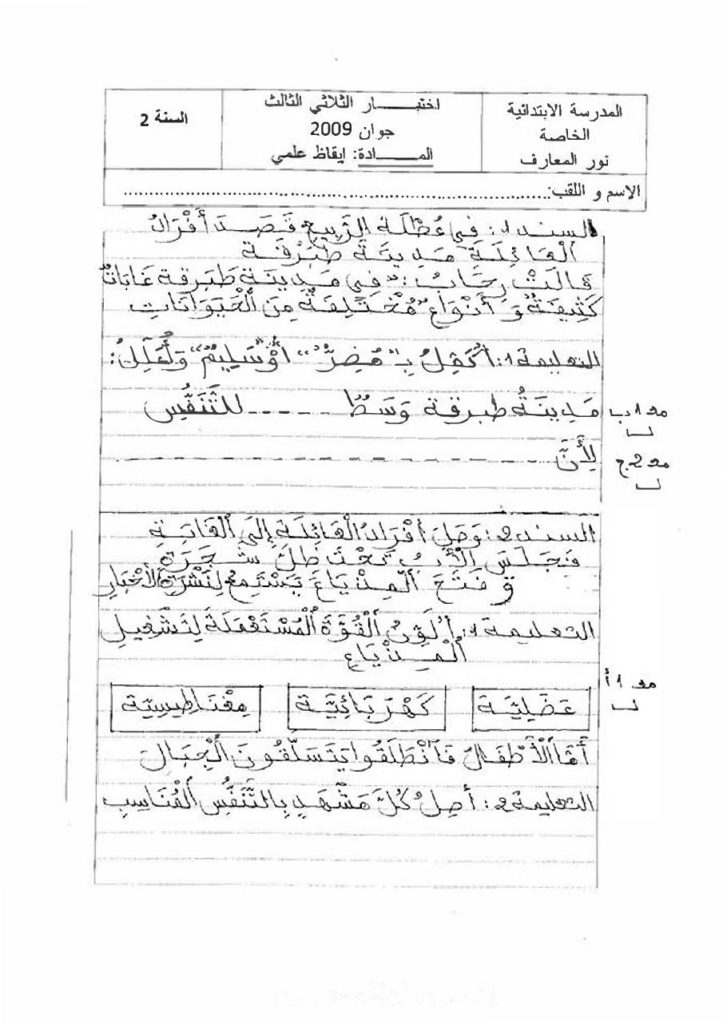 المدرسة الابتدائية
الخاصة
نور المعارف
اختبـــــــار الثلاثي الثالث
جوان 2009
المـــــادة: إيقاظ علمي
السنة 2
الاسم و اللقب:......................................................................
السند 1: في عُطْلَةِ الرَّبِيعِ قَصَدَ أَفْرَادُ
الْعَائِلَةِ مَدِينَةَ طَبَرْقَةَ
قَالَتْ رِحَابُ: "فِي مَدِينَةِ طَبَرْقَة غَابَاتٌ
كَثِيفَةٌ وَ أَنْوَاعٌ مُخْتَلِفَةٌ مِنَ الْحَيَوَانَاتِ
التعليمة 1: أُكْمِلُ بِـ "مُضِرٌّ" أَوْ "سَلِيمٌ" وَأُعَلِّلُ:
مَدِينَةُ طبرقة وَسَطٌ ----- للتَّنَفُّسِ
مع 1 ب
لِأَنَّ ----------------------
مع 2 ج
السند 2: وَصَلَ أَفْرَادُ الْعَائِلَةِ إِلَى الْغَابَةِ
فَجَلَسَ الْأَبُ تَحْتَ ظِلِّ شَجَرَةٍ
وَ فَتَحَ الْمِذْيَاعَ يَسْتَمِعُ لِنَشْرَةِ الْأَخْبَارِ
التعليمة 1: أُلَوِّنُ الْقُوَّةَ الْمُسْتَعْمَلَةَ لِتَشْغِيلِ
الْمِـذْيَاعِ
مع 1 أ
عَضَلِيَّـة
كَهْرَبَائِيَّـة
مِغْنَاطِيسِيَّة
أَمَّا الْأَطْفَالُ فَانْطَلَقُوا يَتَسَلَّقُونَ الْجِبَالَ
التعليمة 2: أَصِلُ كُلَّ مَشْهَدٍ بِالتَّنَفُّسِ الْمُنَاسِبِ